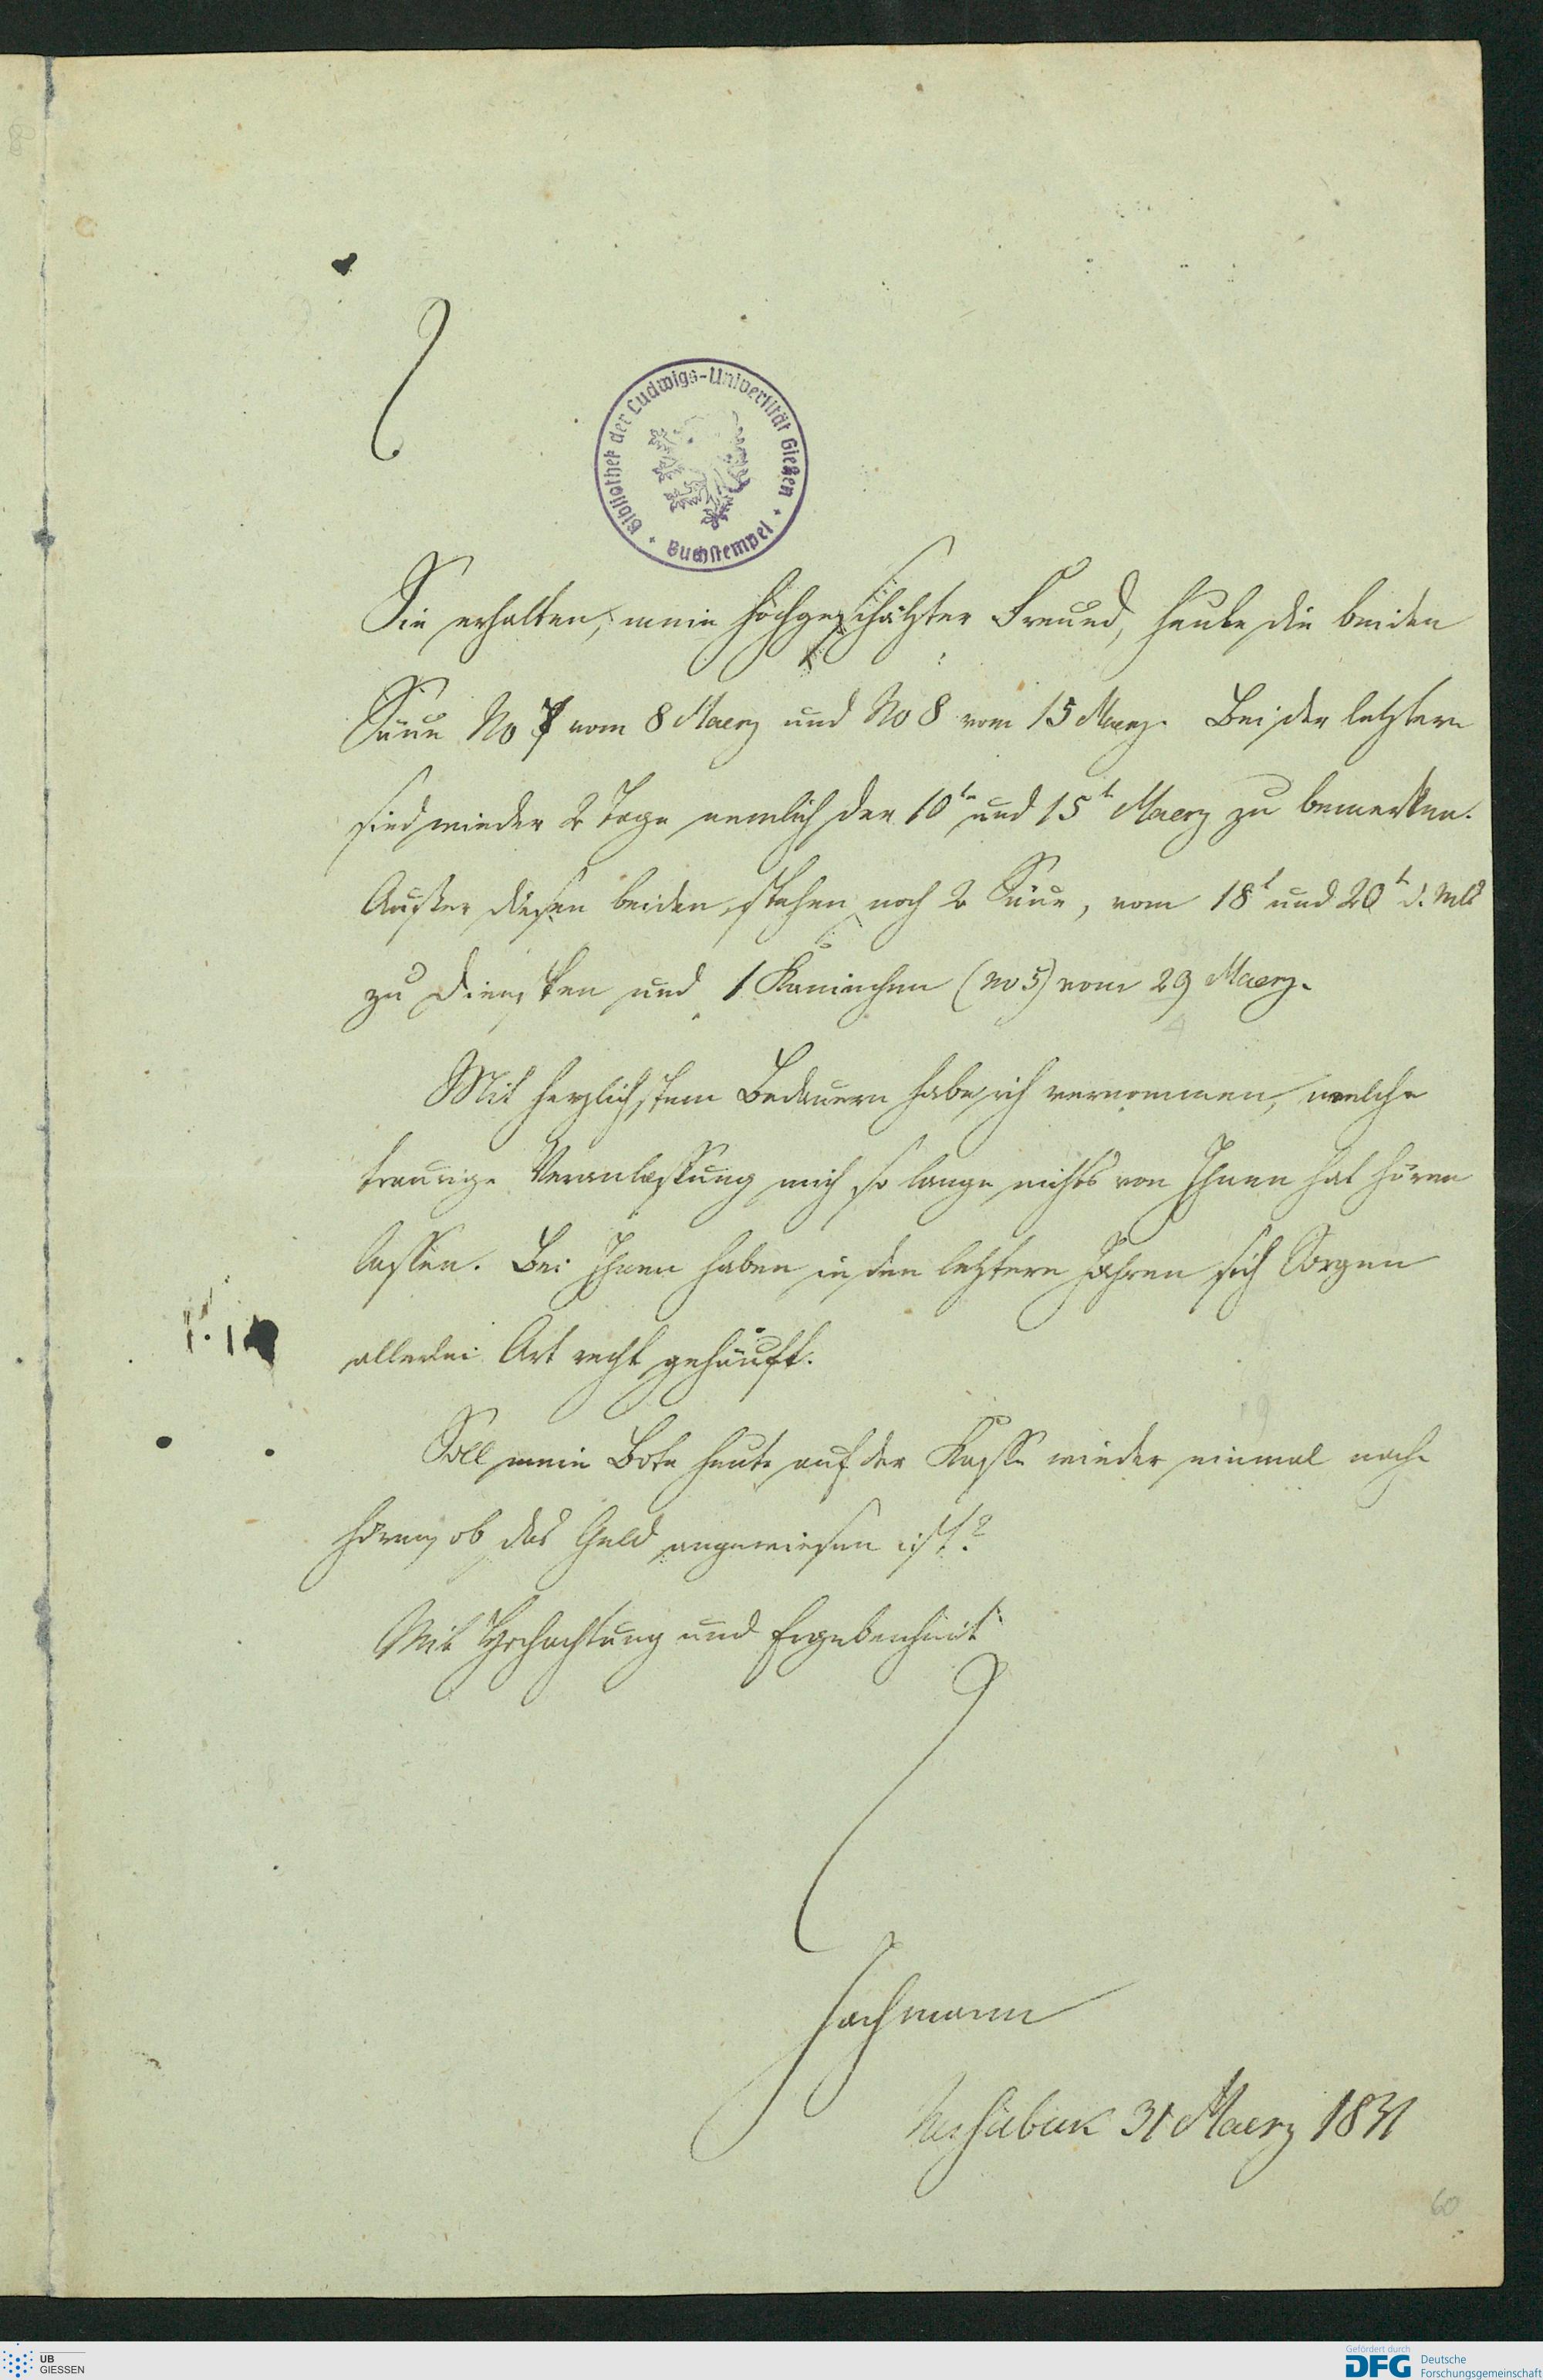 Bibliothek der Ludwigs-Universität Gießen
Buchstempel
Sie erhalten, mein hochgeschätzter Freund, heute die beiden
Säue No 7 vom 8 Maerz und No 8 vom 15 Maerz. Bei der letztern
sind wieder 2 Tage nemlich der 10t und 15t Maerz zu bemerken.
Außer diesen beiden stehen noch 2 Säue, vom 18t und 20t d. Mts
zu Diensten und 1 Kaninchen (no 5) vom 29 Maerz.
Mit herzlichstem Bedauern habe ich vernommen, welche
traurige Veranlassung mich so lange nichts von Ihnen hat hören
lassen. Bei Ihnen haben in den letztern Jahren sich Sorgen
allerlei Art recht gehäuft.
Soll mein Bote heute auf der Kasse wieder einmal nach
hören, ob das Geld angewiesen ist?
Mit Hochachtung und Ergebenheit
Hachmann
31 Maerz 1831
60
UB
GIESSEN
Gefördert durch
DFG Deutsche
Forschungsgemeinschaft